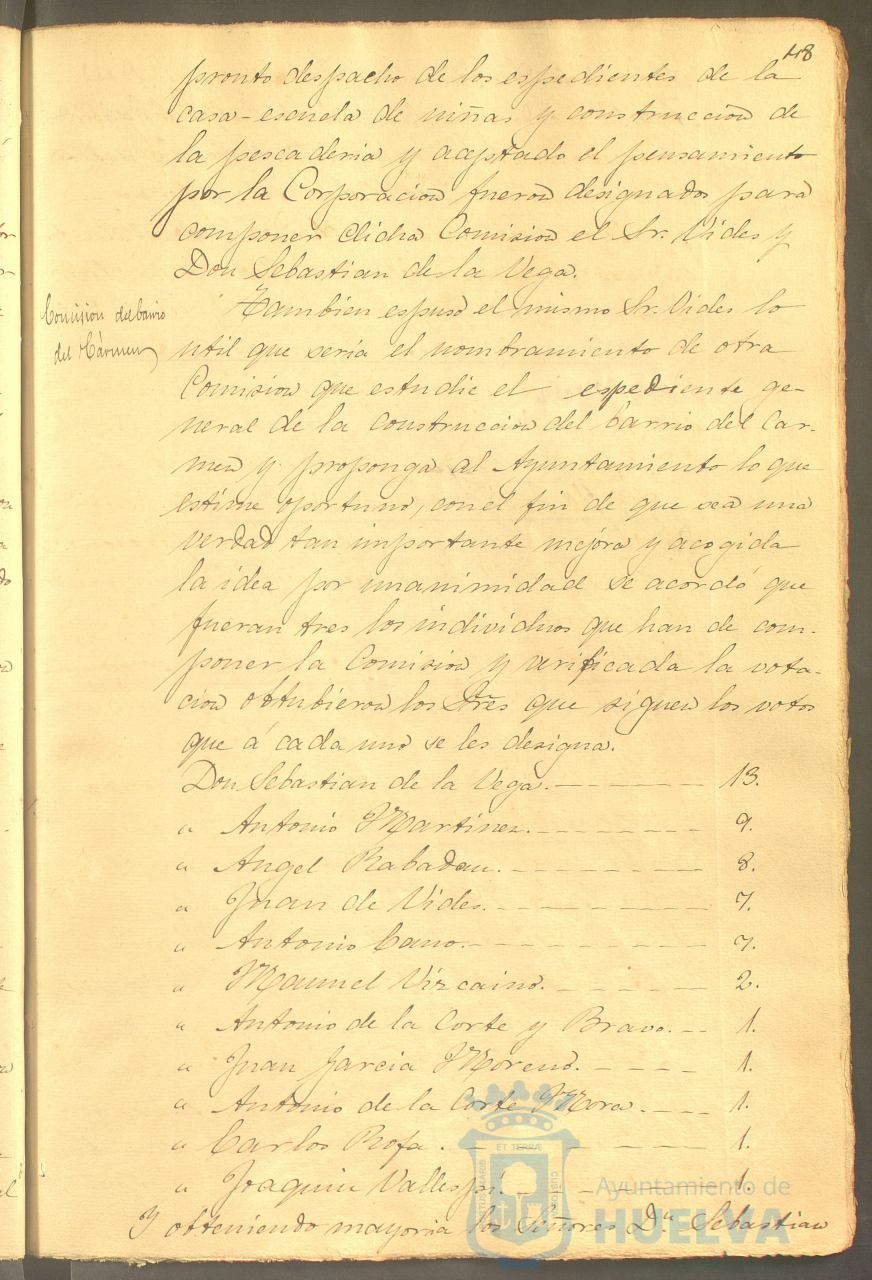 48
pronto despacho de los espedientes de la
casa-escuela de niñas y construccion de
la pescaderia y aceptado el pensamiento
por la Corporacion fueron designados para
componer dicha Comision el Sr. Vides y
Don Sebastian de la Vega.
Comision del barrio
del Cármen
Tambien espuso el mismo Sr. Vides lo
util que seria el nombramiento de otra
Comision que estudie el espediente ge-
neral de la construccion del barrio del Car-
men y proponga al Ayuntamiento lo que
estime oportuno, con el fin de que sea una
verdad tan importante mejora y acogida
la idea por unanimidad se acordó que
fueran tres los individuos que han de com-
poner la Comision y verificada la vota-
cion obtubieron los Sres que siguen los votos
que á cada uno se les designa.
Don Sebastian de la Vega. 13.
" Antonio Martinez. 9.
" Angel Rabadan. 8.
" Juan de Vides. 7.
" Antonio Cano. 7.
" Manuel Vizcaino. 2.
" Antonio de la Corte y Bravo. 1.
" Juan Garcia Moreno. 1.
" Antonio de la Corte Mora. 1.
" Carlos Rofa. 1.
" Joaquin Vallespi. 1.
Y obteniendo mayoria los Señores Dn Sebastian
ET TERRÆ
CUSTODIA
Ayuntamiento de
HUELVA